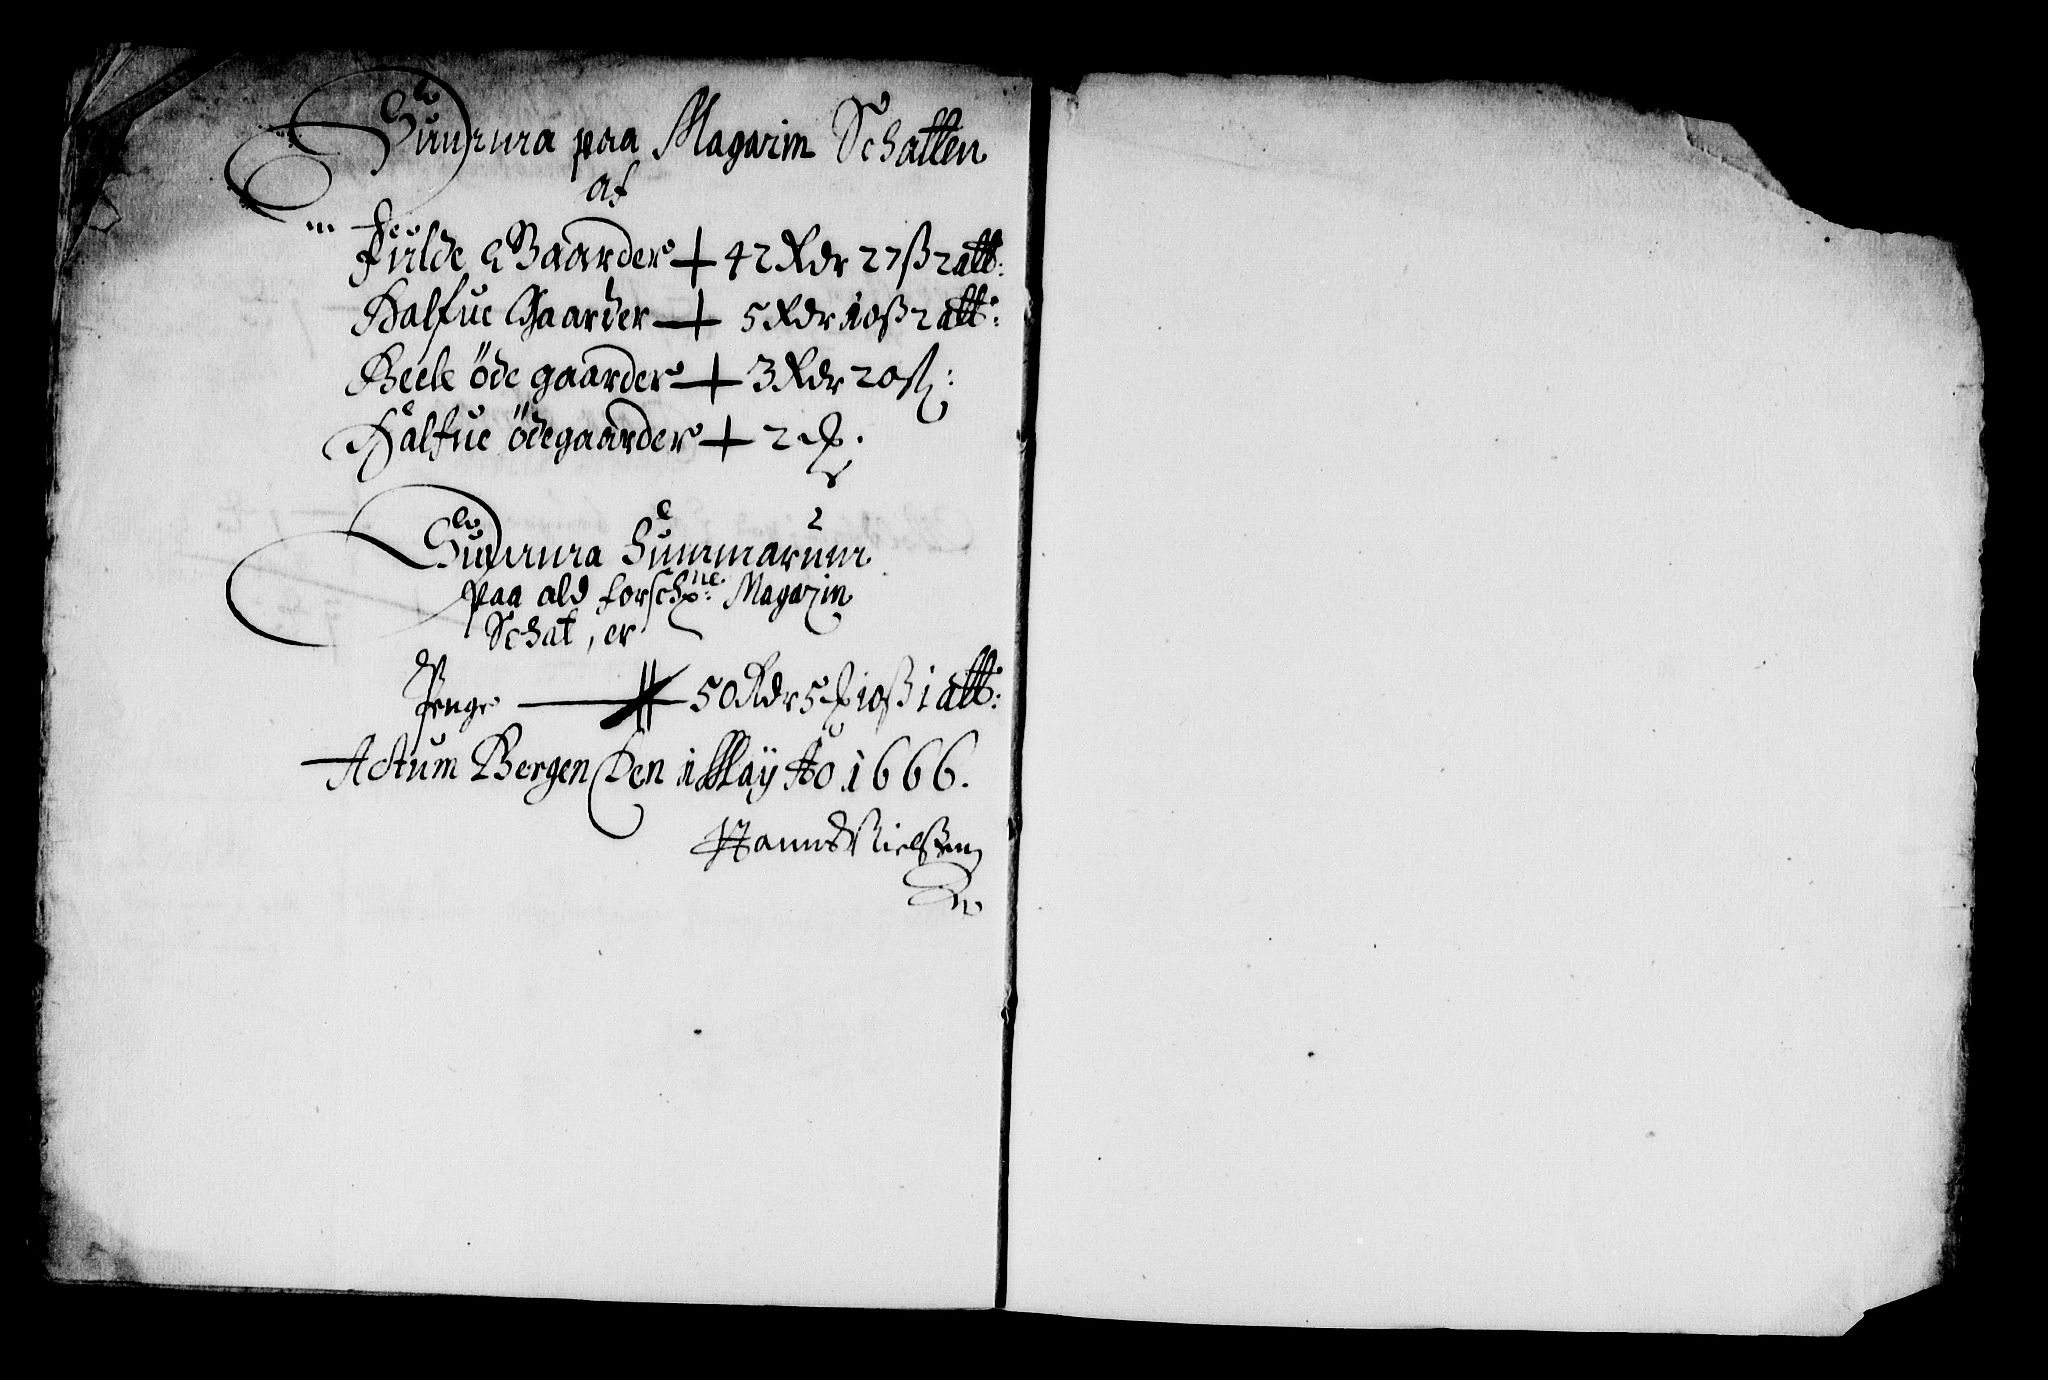 Summa paa Magazin Schatten
af
Fulde Gaarder 42 Rdr 27 ß 2 alb:
Halfue Gaarder 5 Rdr 10 ß 2 alb:
Heele öde gaarder 3 Rdr 20 ß:
Halfue ödegaarder 2 ꝶ.
Summa Summarum
paa ald forschne: Magazin
Schat, er
Penge 50 Rdr 5 ꝶ 10 ß 1 alb:
Actum Bergen den 1 May Ao 1666.
Hanns Nielssen